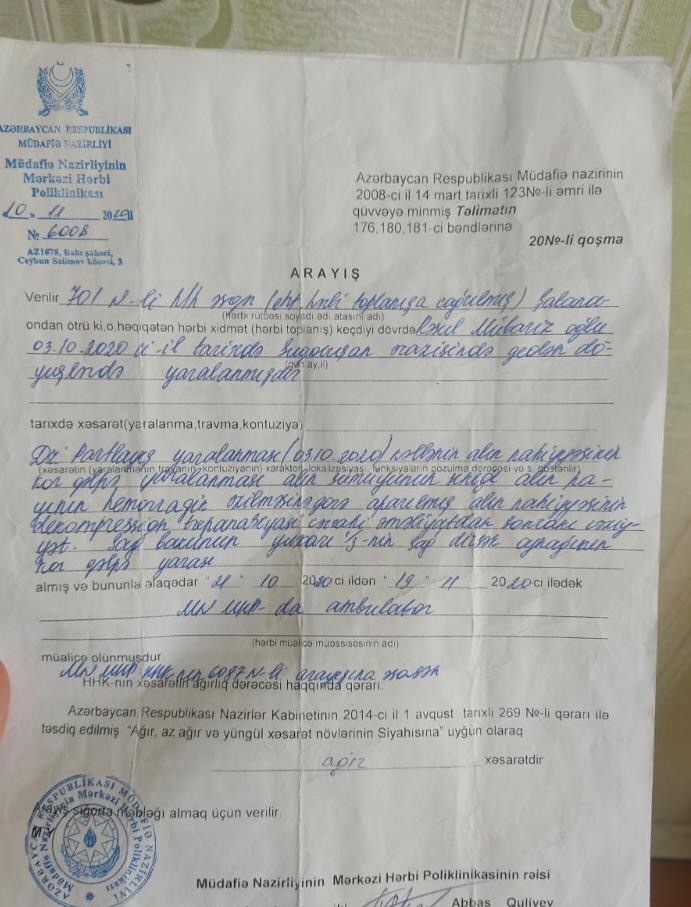 AZƏRBAYCAN RESPUBLİKASI
MÜDAFİƏ NAZİRLİYİ
Müdafiə Nazirliyinin
Mərkəzi Hərbi
Poliklinikası
20. 11 20
№ 6008
AZ1078, Bakı şəhəri,
Ceyhun Səlimov küçəsi, 3
Azərbaycan Respublikası Müdafiə nazirinin
2008-ci il 14 mart tarixli 123№-li əmri ilə
qüvvəyə minmiş Təlimatın
176,180,181-ci bəndlərinə
20№-li qoşma
ARAYIŞ
Verilir 701 N-li h/h toplanışa çağırılmış)
(Hərbi rütbəsi soyadı adı atasını adı)
ondan ötrü ki,o,həqiqətən hərbi xidmət (hərbi toplanış) keçdiyi dövrdə Mübariz oğlu
03.10.2020 ci-il tarixdə Suqovuşan ərazisində gedən dö-
yüşlərdə yaralanmışdır
(gün,ay,il)
tarixdə xəsarət(yaralanma,travma,kontuziya)
Partlayış yaralanması (03.10.2020) kəllənin alın nahiyəsinin
(xəsarətin (yaralanmanın,travmanın,kontuziyanın) xarakteri,lokalizasiyası, funksiyaların pozulma dərəcəsi və s. göstərilir)
kor qəlpə yaralanması alın sümüyünün alın pa-
yının hemorragik əzilməsinə görə aparılmış alın nahiyəsinin
dekompression trepanasiyası cərrahi əməliyyatdan sonrakı vəziy-
yət. Sağ yuxarı 1/3-nin sağ dirsək
kor qəlpə yarası
almış və bununla əlaqədar " 21 " 10 2020 ci ildən " 19 " 11 2020 ci ilədək
MN MHP-da ambulator
(hərbi müalicə müəssisəsinin adı)
müalicə olunmuşdur
MN MHP HHK-nın 6087 N-li arayışına əsasən
HHK-nın xəsarətin ağırlıq dərəcəsi haqqında qərarı.
Azərbaycan Respublikası Nazirlər Kabinetinin 2014-ci il 1 avqust tarixli 269 №-li qərarı ilə
təsdiq edilmiş "Ağır, az ağır və yüngül xəsarət növlərinin Siyahısına" uyğun olaraq
ağır xəsarətdir
Arayış sığorta məbləği almaq üçün verilir.
M.Y
AZƏRBAYCAN RESPUBLİKASI MÜDAFİƏ NAZİRLİYİ
Müdafiə Nazirliyinin Mərkəzi Hərbi Poliklinikası
Müdafiə Nazirliyinin Mərkəzi Hərbi Poliklinikasının rəisi
Abbas Quliyev